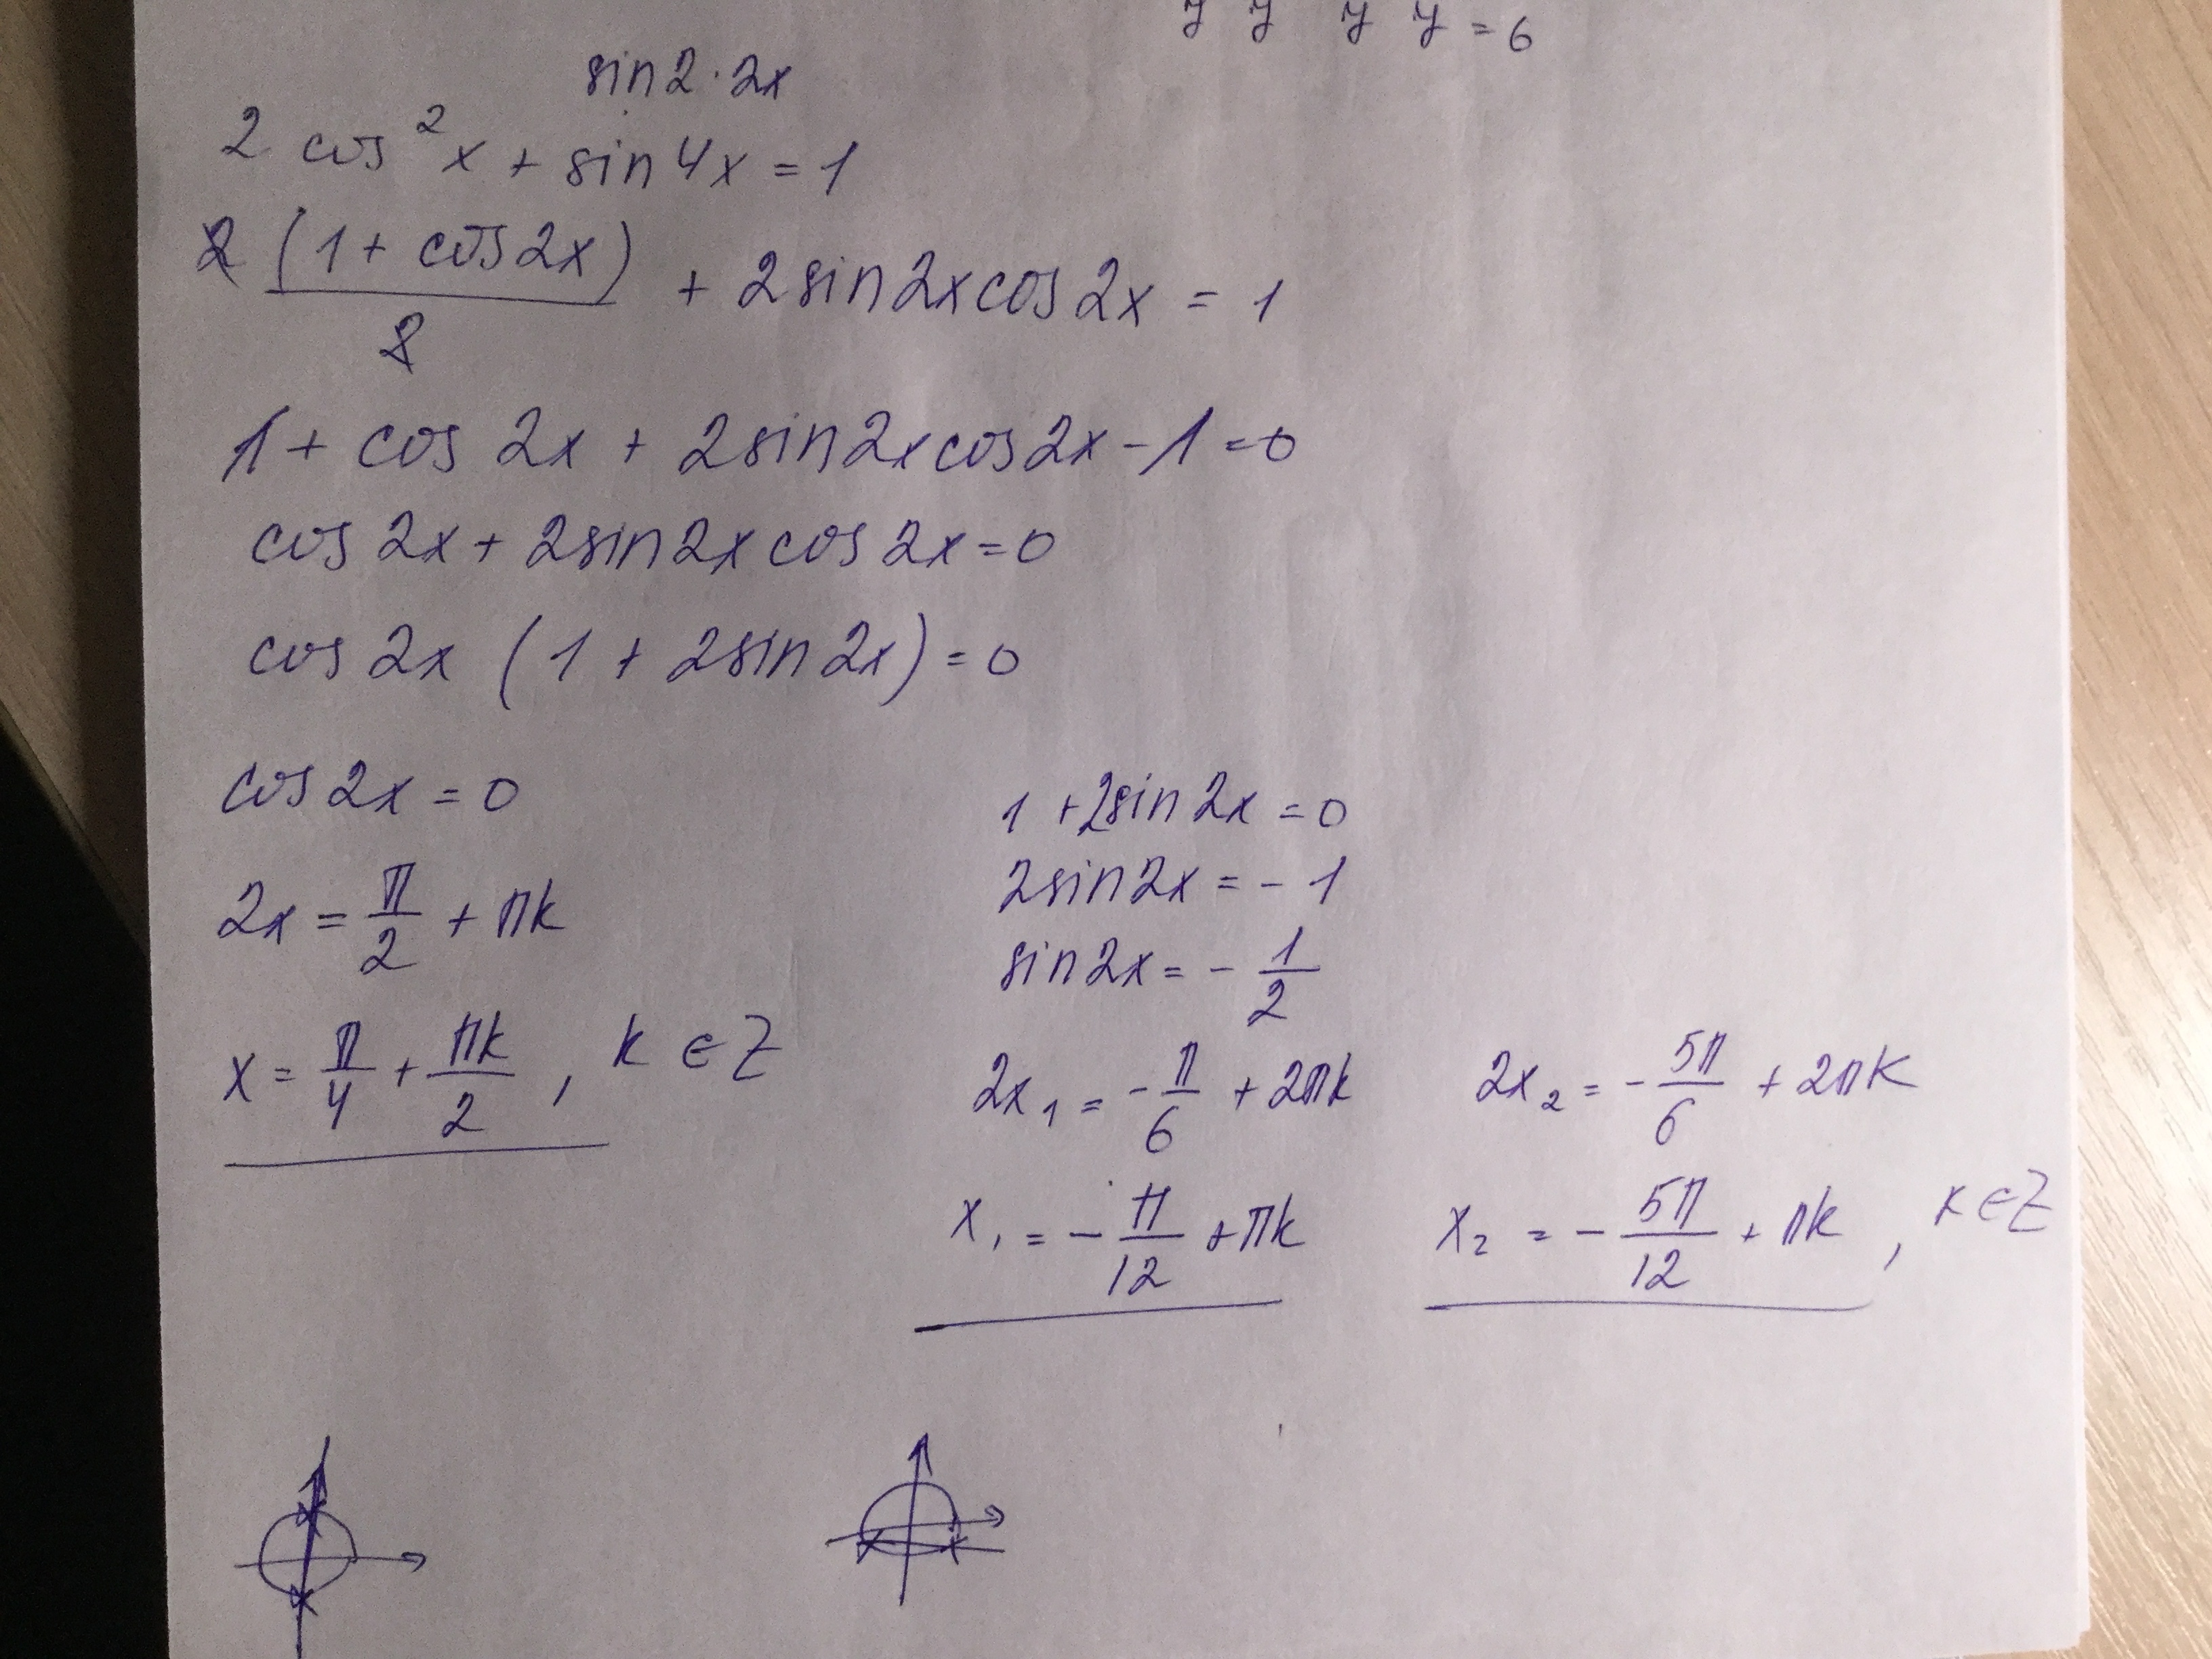 y y y y = 6
sin2·2x
2 cos²x + sin4x = 1
2 (1 + cos2x)/2 + 2sin2xcos2x = 1
1 + cos 2x + 2sin2xcos2x - 1 = 0
cos 2x + 2sin2x cos 2x = 0
cos 2x (1 + 2sin 2x) = 0
cos 2x = 0
2x = π/2 + πk
x = π/4 + πk/2 , k ∈ Z
1 + 2sin 2x = 0
2sin2x = - 1
sin2x = - 1/2
2x₁ = - π/6 + 2πk
2x₂ = - 5π/6 + 2πk
x₁ = - π/12 + πk
x₂ = - 5π/12 + πk , k ∈ Z